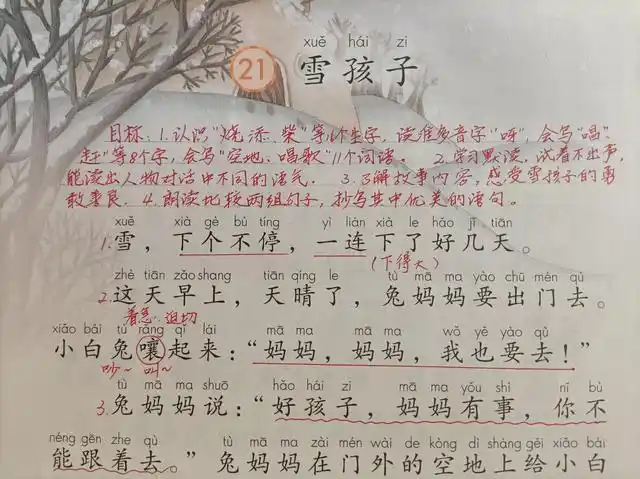 xuě hái zi
21 雪孩子
目标：1.认识"烧、添、柴"等16个生字，读准多音字"呀"，会写"唱、
赶"等8个字，会写"空地、唱歌"11个词语。 2.学习默读，试着不出声，
能读出人物对话中不同的语气。 3.了解故事内容，感受雪孩子的勇
敢善良。4.朗读比较两组句子，抄写其中优美的语句。
xuě xià gè bù tíng yì lián xià le hǎo jǐ tiān
1.雪，下个不停，一连下了好几天。
(下得大)
zhè tiān zǎo shang tiān qíng le tù mā ma yào chū mén qù
2.这天早上，天晴了，兔妈妈要出门去。
着急、迫切
xiǎo bái tù rǎng qǐ lái mā ma mā ma wǒ yě yào qù
小白兔嚷起来："妈妈，妈妈，我也要去！"
吵~ 叫~
tù mā ma shuō hǎo hái zi mā ma yǒu shì nǐ bù
3.兔妈妈说："好孩子，妈妈有事，你不
néng gēn zhe qù tù mā ma zài mén wài de kòng dì shàng gěi xiǎo bái
能跟着去。"兔妈妈在门外的空地上给小白